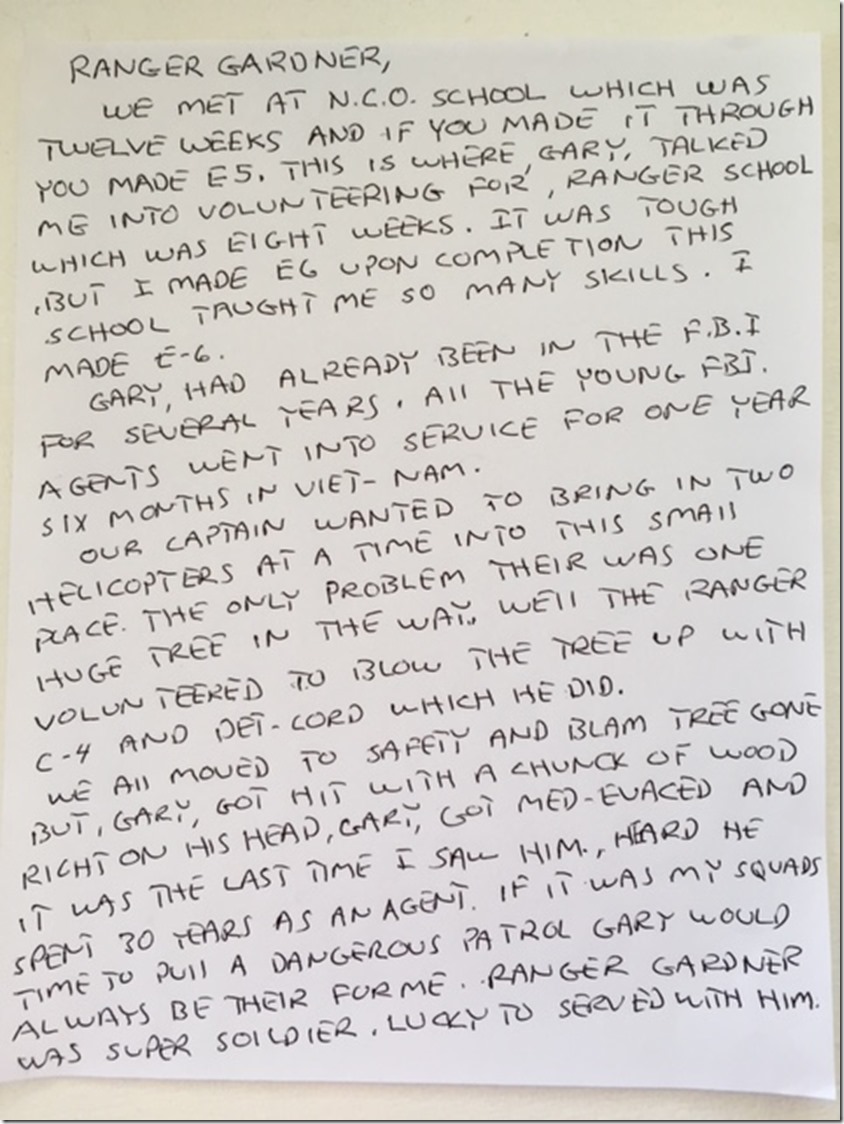 RANGER GARDNER,
WE MET AT N.C.O. SCHOOL WHICH WAS
TWELVE WEEKS AND IF YOU MADE IT THROUGH
YOU MADE E5. THIS IS WHERE, GARY, TALKED
ME INTO VOLUNTEERING FOR, RANGER SCHOOL
WHICH WAS EIGHT WEEKS. IT WAS TOUGH
, BUT I MADE E6 UPON COMPLETION THIS
SCHOOL TAUGHT ME SO MANY SKILLS. I
MADE E-6.
GARY, HAD ALREADY BEEN IN THE F.B.I
FOR SEVERAL YEARS. All THE YOUNG FBI.
AGENTS WENT INTO SERVICE FOR ONE YEAR
SIX MONTHS IN VIET-NAM.
OUR CAPTAIN WANTED TO BRING IN TWO
HELICOPTERS AT A TIME INTO THIS SMAll
PLACE. THE ONLY PROBLEM THEIR WAS ONE
HUGE TREE IN THE WAY. WEll THE RANGER
VOLUNTEERED TO BLOW THE TREE UP WITH
C-4 AND DET-CORD WHICH HE DID.
WE All MOVED TO SAFETY AND BLAM TREE GONE
BUT, GARY, GOT HIT WITH A CHUNCK OF WOOD
RIGHT ON HIS HEAD, GARY, GOT MED-EVACED AND
IT WAS THE LAST TIME I SAW HIM., HEARD HE
SPENT 30 YEARS AS AN AGENT. IF IT WAS MY SQUADS
TIME TO PUll A DANGEROUS PATROL GARY WOULD
ALWAYS BE THEIR FOR ME. RANGER GARDNER
WAS SUPER SOILDIER. LUCKY TO SERVED WITH HIM.